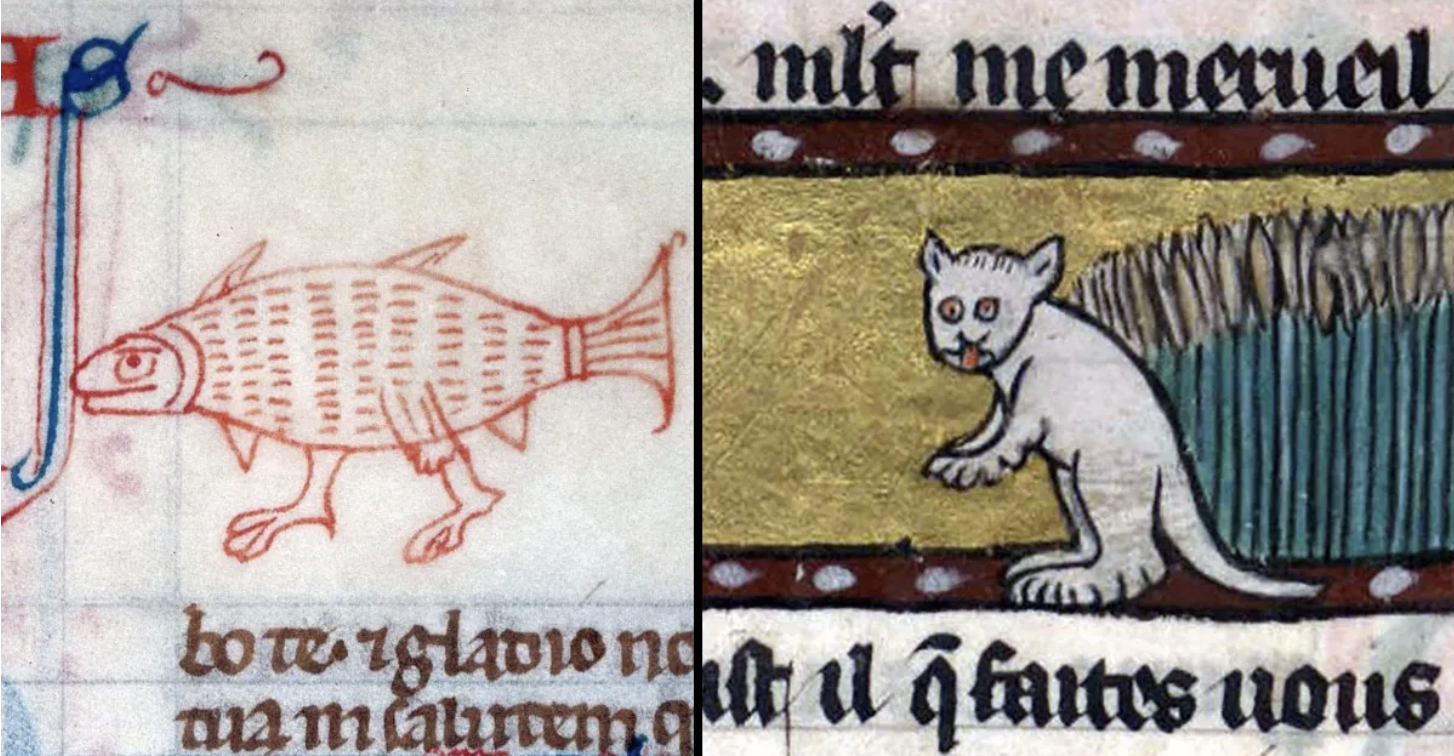 bo te· ⁊ gladio no
tua in salutem q
ml't me merueil
ist il q̄ faites uous